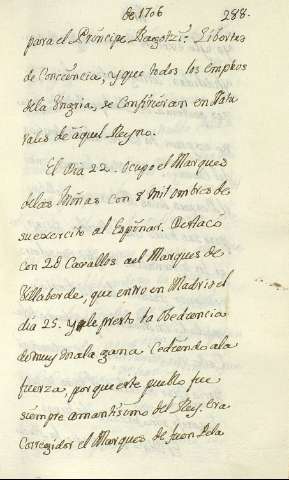 de 1706 288.
para el Príncipe Ragotzi: Libertad
de Conciencia, y que todos los empleos
de la Ungria, se Confirieran en Natu
rales de aquel Reyno.
El dia 22. Ocupo el Marques
de las Minas con 8 mil ombres de
su exercito al Espinar. Destacó
con 2d Cavallos al Marques de
Villaberde, que entro en Madrid el
dia 25. y le presto la Obediencia
de muy mala gana Cediendo a la
fuerza, por que este puello fue
siempre amantisimo del Rey. era
Corregidor el Marques de fuen Pela